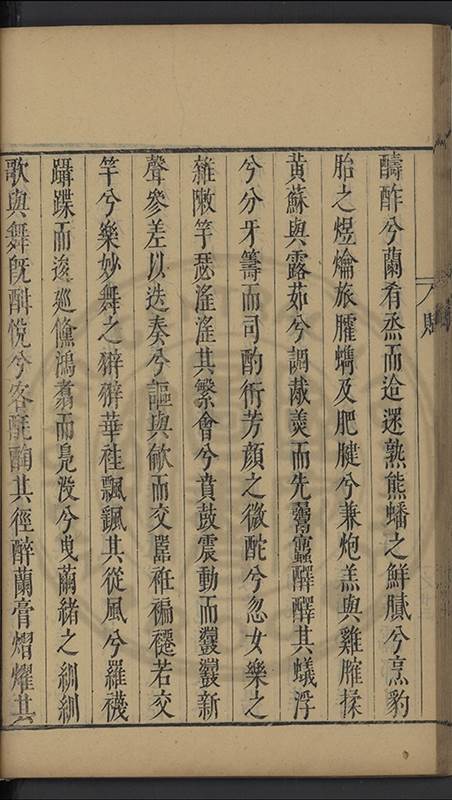 醻酢兮蘭肴烝而迨遝熟熊蟠之鮮膩兮烹豹
胎之煜爚旅臛蠵及肥腱兮兼炮羔與雞臛揉
黃蘇與露茹兮調胾羹而先鬺蠠醳醳其蟻浮
兮分牙籌而司酌術芳顏之微酡兮忽女樂之
雜陳竽瑟滛滛其繁會兮賁鼓震動而鼟鼟新
聲參差以迭奏兮謳與歈而交嚣袵褊褼若交
竿兮樂妙舞之獙獙華袿飄颻其從風兮羅襪
躡蹀而逡巡儵鴻翥而鳧沒兮曳繭緒之紃紃
歌與舞旣酣恱兮客酕醄其徑醉蘭膏熠燿其
賦